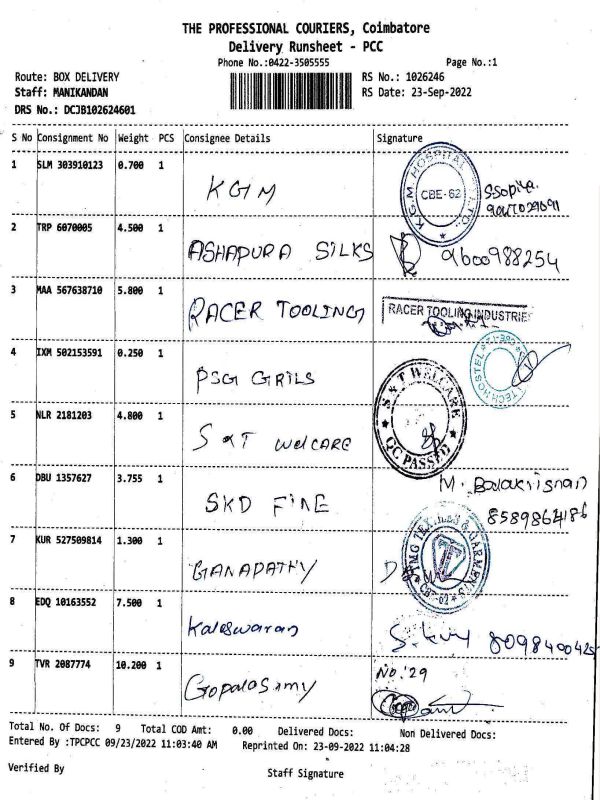 THE PROFESSIONAL COURIERS, Coimbatore
Delivery Runsheet - PCC
Phone No.:0422-3505555 Page No.:1
Route: BOX DELIVERY RS No.: 1026246
Staff: MANIKANDAN RS Date: 23-Sep-2022
DRS No.: DCJB102624601
S No Consignment No Weight PCS Consignee Details Signature
1 SLM 303910123 0.700 1 KGM K.G.M. HOSPITAL CBE-62
2 TRP 6070005 4.500 1 ASHAPURA SILKS 9600988254
3 MAA 567638710 5.800 1 RACER TOOLING RACER TOOLING INDUSTRIES
4 IXM 502153591 0.250 1 PSG GRILS
5 NLR 2181203 4.800 1 S &T WelCARE S & T WELCARE QC PASSED
6 DBU 1357627 3.755 1 SKD FINE M. Balakrisnan
8589864186
7 KUR 527509814 1.300 1 GANAPATHY
8 EDQ 10163552 7.500 1 Kaleswaran
9 TVR 2087774 10.200 1 Gopalosimy No: 29
Total No. Of Docs: 9 Total COD Amt: 0.00 Delivered Docs: Non Delivered Docs:
Entered By :TPCPCC 09/23/2022 11:03:40 AM Reprinted On: 23-09-2022 11:04:28
Verified By Staff Signature